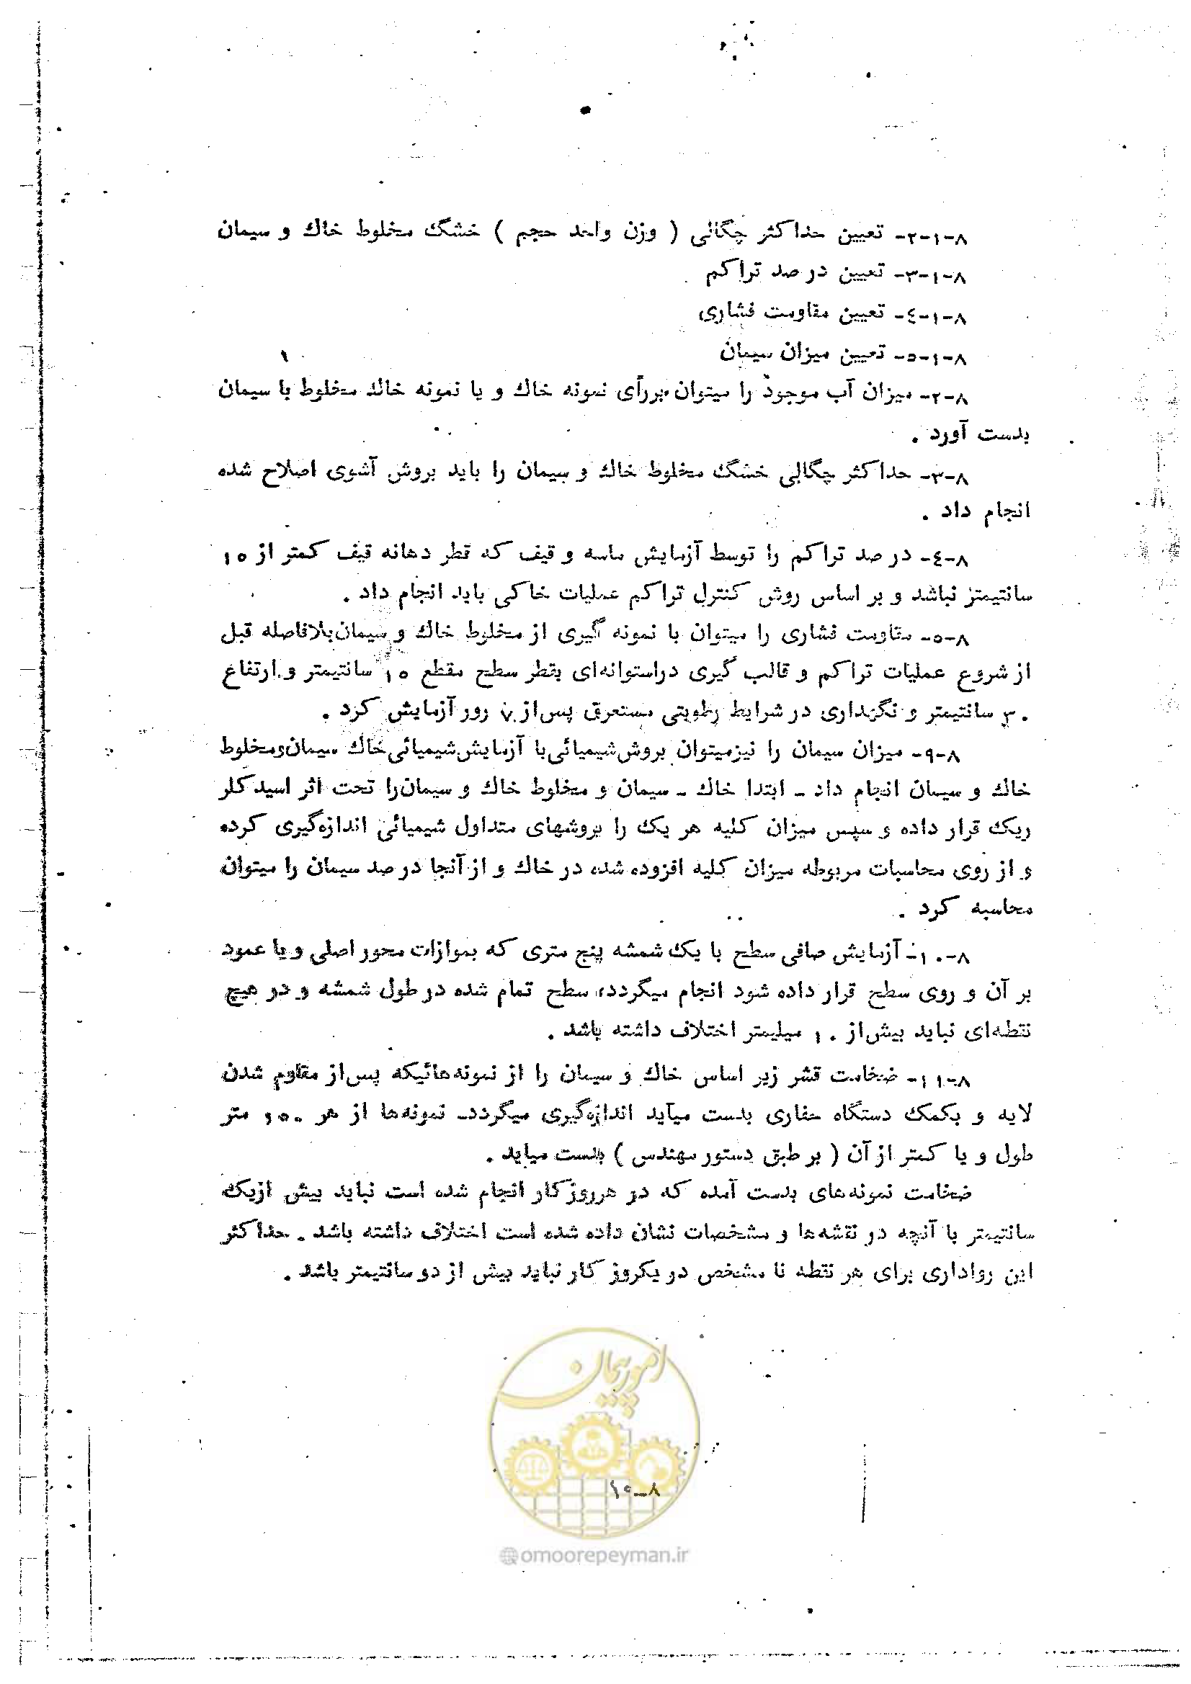 ۸-۱-۲- تعیین حداکثر چگالی ( وزن واحد حجم ) خشگ مخلوط خاك و سیمان
۸-۱-۳- تعیین درصد تراکم .
۸-۱-٤- تعیین مقاومت فشاری
۸-۱-۵- تعیین میزان سیمان
۸-۲- میزان آب موجود را میتوان برأی نمونه خاك و یا نمونه خاك مخلوط با سیمان
بدست آورد .
۸-۳- حداکثر چگالی خشگ مخلوط خاك و سیمان را باید بروش آشوی اصلاح شده
انجام داد .
۸-٤- درصد تراکم را توسط آزمایش ماسه و قیف که قطر دهانه قیف کمتر از ۱۵
سانتیمتر نباشد و بر اساس روش کنترل تراکم عملیات خاکی باید انجام داد .
۸-۵- مقاومت فشاری را میتوان با نمونه گیری از مخلوط خاك و سیمان بلافاصله قبل
از شروع عملیات تراکم و قالب گیری در استوانه‌ای بقطر سطح مقطع ۱۵ سانتیمتر و ارتفاع
۳۰ سانتیمتر و نگهداری در شرایط رطوبتی مستغرق پس‌از ۷ روز آزمایش کرد .
۸-۹- میزان سیمان را نیز میتوان بروش شیمیائی با آزمایش شیمیائی خاك سیمان و مخلوط
خاك و سیمان انجام داد - ابتدا خاك - سیمان و مخلوط خاك و سیمان را تحت اثر اسید کلر
ریک قرار داده و سپس میزان کلیه هر یک را بروشهای متداول شیمیائی اندازه‌گیری کرده
و از روی محاسبات مربوطه میزان کلیه افزوده شده در خاك و از آنجا درصد سیمان را میتوان
محاسبه کرد .
۸-۱۰- آزمایش صافی سطح با یک شمشه پنج متری که بموازات محور اصلی و یا عمود
بر آن و روی سطح قرار داده شود انجام میگردد، سطح تمام شده در طول شمشه و در هیچ
نقطه‌ای نباید بیش‌از ۱۰ میلیمتر اختلاف داشته باشد .
۸-۱۱- ضخامت قشر زیر اساس خاك و سیمان را از نمونه‌هائیکه پس‌از مقاوم شدن
لایه و بکمک دستگاه حفاری بدست میآید اندازه‌گیری میگردد- نمونه‌ها از هر ۱۵۰ متر
طول و یا کمتر از آن ( بر طبق دستور مهندس ) بدست میاید .
ضخامت نمونه‌های بدست آمده که در هر روز کار انجام شده است نباید بیش از یک
سانتیمتر با آنچه در نقشه‌ها و مشخصات نشان داده شده است اختلاف داشته باشد . حداکثر
این رواداری برای هر نقطه نا مشخص در یکروز کار نباید بیش از دو سانتیمتر باشد .
امور پیمان
۸-۱۵
@omoorepeyman.ir